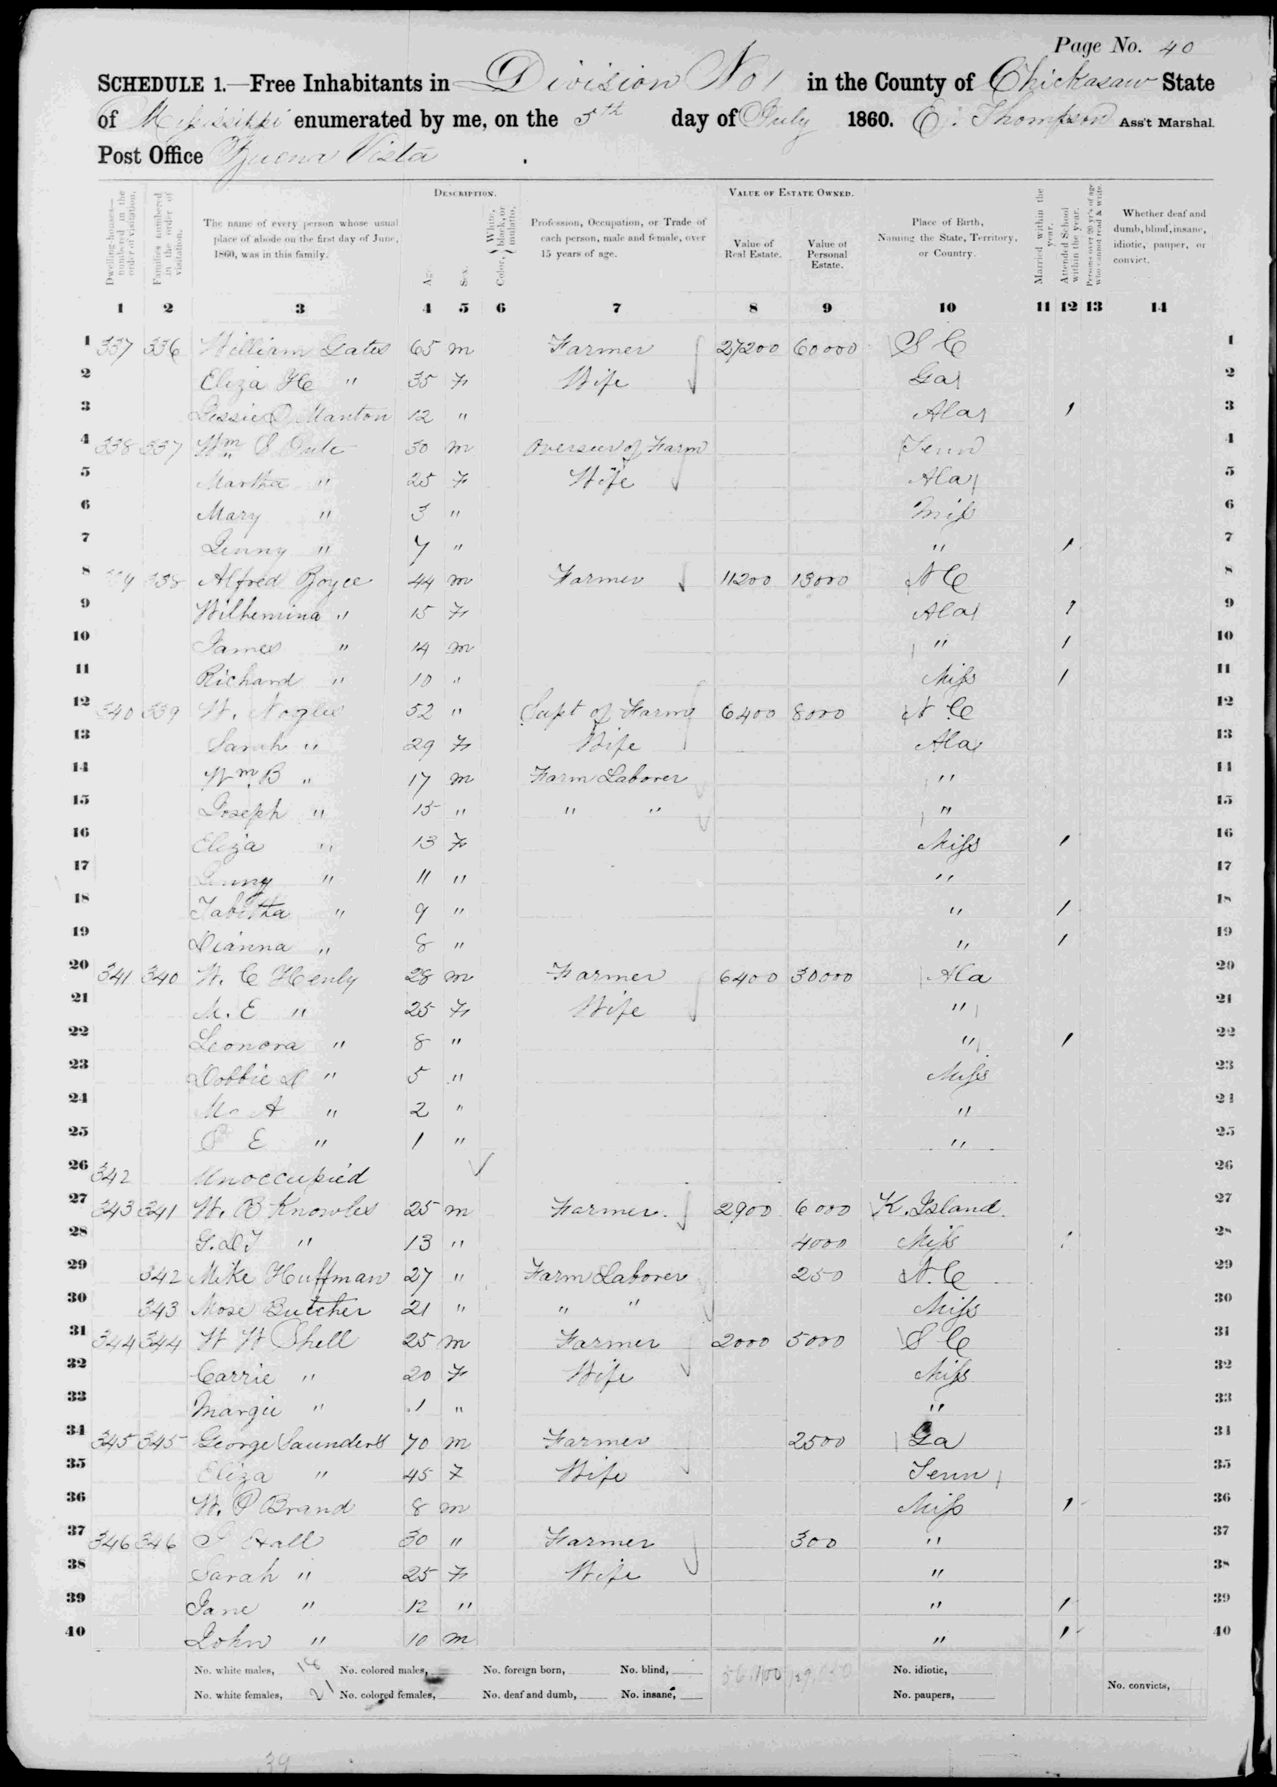 Page No. 40
SCHEDULE 1.—Free Inhabitants in Division No 1 in the County of Chickasaw State
of Mississippi enumerated by me, on the 5th day of July 1860. E. Thompson Ass't Marshal.
Post Office Buena Vista
Dwelling-houses—numbered in the order of visitation. Families numbered in the order of visitation. The name of every person whose usual place of abode on the first day of June, 1860, was in this family. DESCRIPTION. Age. Sex. Color, White, black, or mulatto. Profession, Occupation, or Trade of each person, male and female, over 15 years of age. VALUE OF ESTATE OWNED. Value of Real Estate. Value of Personal Estate. Place of Birth, Naming the State, Territory, or Country. Married within the year. Attended School within the year. Persons over 20 y'rs of age who cannot read & write. Whether deaf and dumb, blind, insane, idiotic, pauper, or convict.
1 2 3 4 5 6 7 8 9 10 11 12 13 14
1 337 336 William Gates 65 m Farmer 27200 60000 S C 1
2 Eliza H " 35 F Wife Ga 2
3 Manton 12 " Ala / 3
4 338 337 Wm S 30 m Overseer of Farm Tenn 4
5 Martha " 25 F Wife Ala 5
6 Mary " 3 " Miss 6
7 Jenny " 7 " " / 7
8 338 Alfred Boyce 44 m Farmer 11200 13000 N C 8
9 Wilhemina " 15 F Ala / 9
10 James " 14 m " / 10
11 Richard " 10 " Miss / 11
12 340 339 W. Nogles 52 " Supt of Farm 6400 8000 N C 12
13 Sarah " 29 F Wife Ala 13
14 Wm B " 17 m Farm Laborer " 14
15 Joseph " 15 " " " " 15
16 Eliza " 13 F Miss / 16
17 Jenny " 11 " " 17
18 Tabitha " 9 " " / 18
19 Dianna " 8 " " / 19
20 341 340 W. C Henly 28 m Farmer 6400 30000 Ala 20
21 M. E " 25 F Wife " 21
22 Leonora " 8 " " / 22
23 Dobbie D " 5 " Miss 23
24 M A " 2 " " 24
25 E " 1 " " 25
26 342 Unoccupied 26
27 343 341 W. B Knowles 25 m Farmer 2900 6000 R. Island 27
28 " 13 " 4000 Miss / 28
29 342 Mike Huffman 27 " Farm Laborer 250 N. C 29
30 343 Mose Butcher 21 " " " Miss 30
31 344 344 W W Shell 25 m Farmer 2000 5000 S C 31
32 Carrie " 20 F Wife Miss 32
33 Margie " 1 " " 33
34 345 345 George Saunders 70 m Farmer 2500 Ga 34
35 Eliza " 45 F Wife Tenn 35
36 W. P Brand 8 m Miss / 36
37 346 346 Hall 30 " Farmer 300 " 37
38 Sarah " 25 F Wife " 38
39 Jane " 12 " " / 39
40 John " 10 m " / 40
No. white males, 18 No. colored males, No. foreign born, No. blind, 56,100 No. idiotic,
No. white females, 21 No. colored females, No. deaf and dumb, No. insane, No. paupers, No. convicts,
39